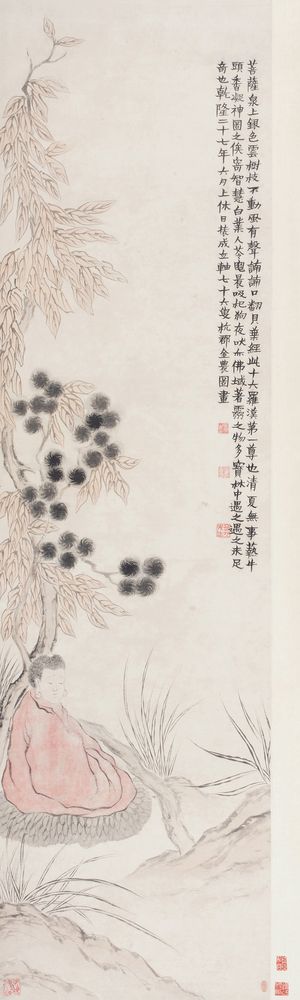 菩薩泉上銀色雲樹枝不動風有聲誦誦口翻貝葉經此十六羅漢第一尊也清夏無事執牛
頭香凝神圖之俟寄智慧白業人苓
夜吠亦佛域著靈之物多寶林中遇之遇之未足
奇也乾隆二十七年六月上休日裝成立軸七十六叟杭郡金農圖畫